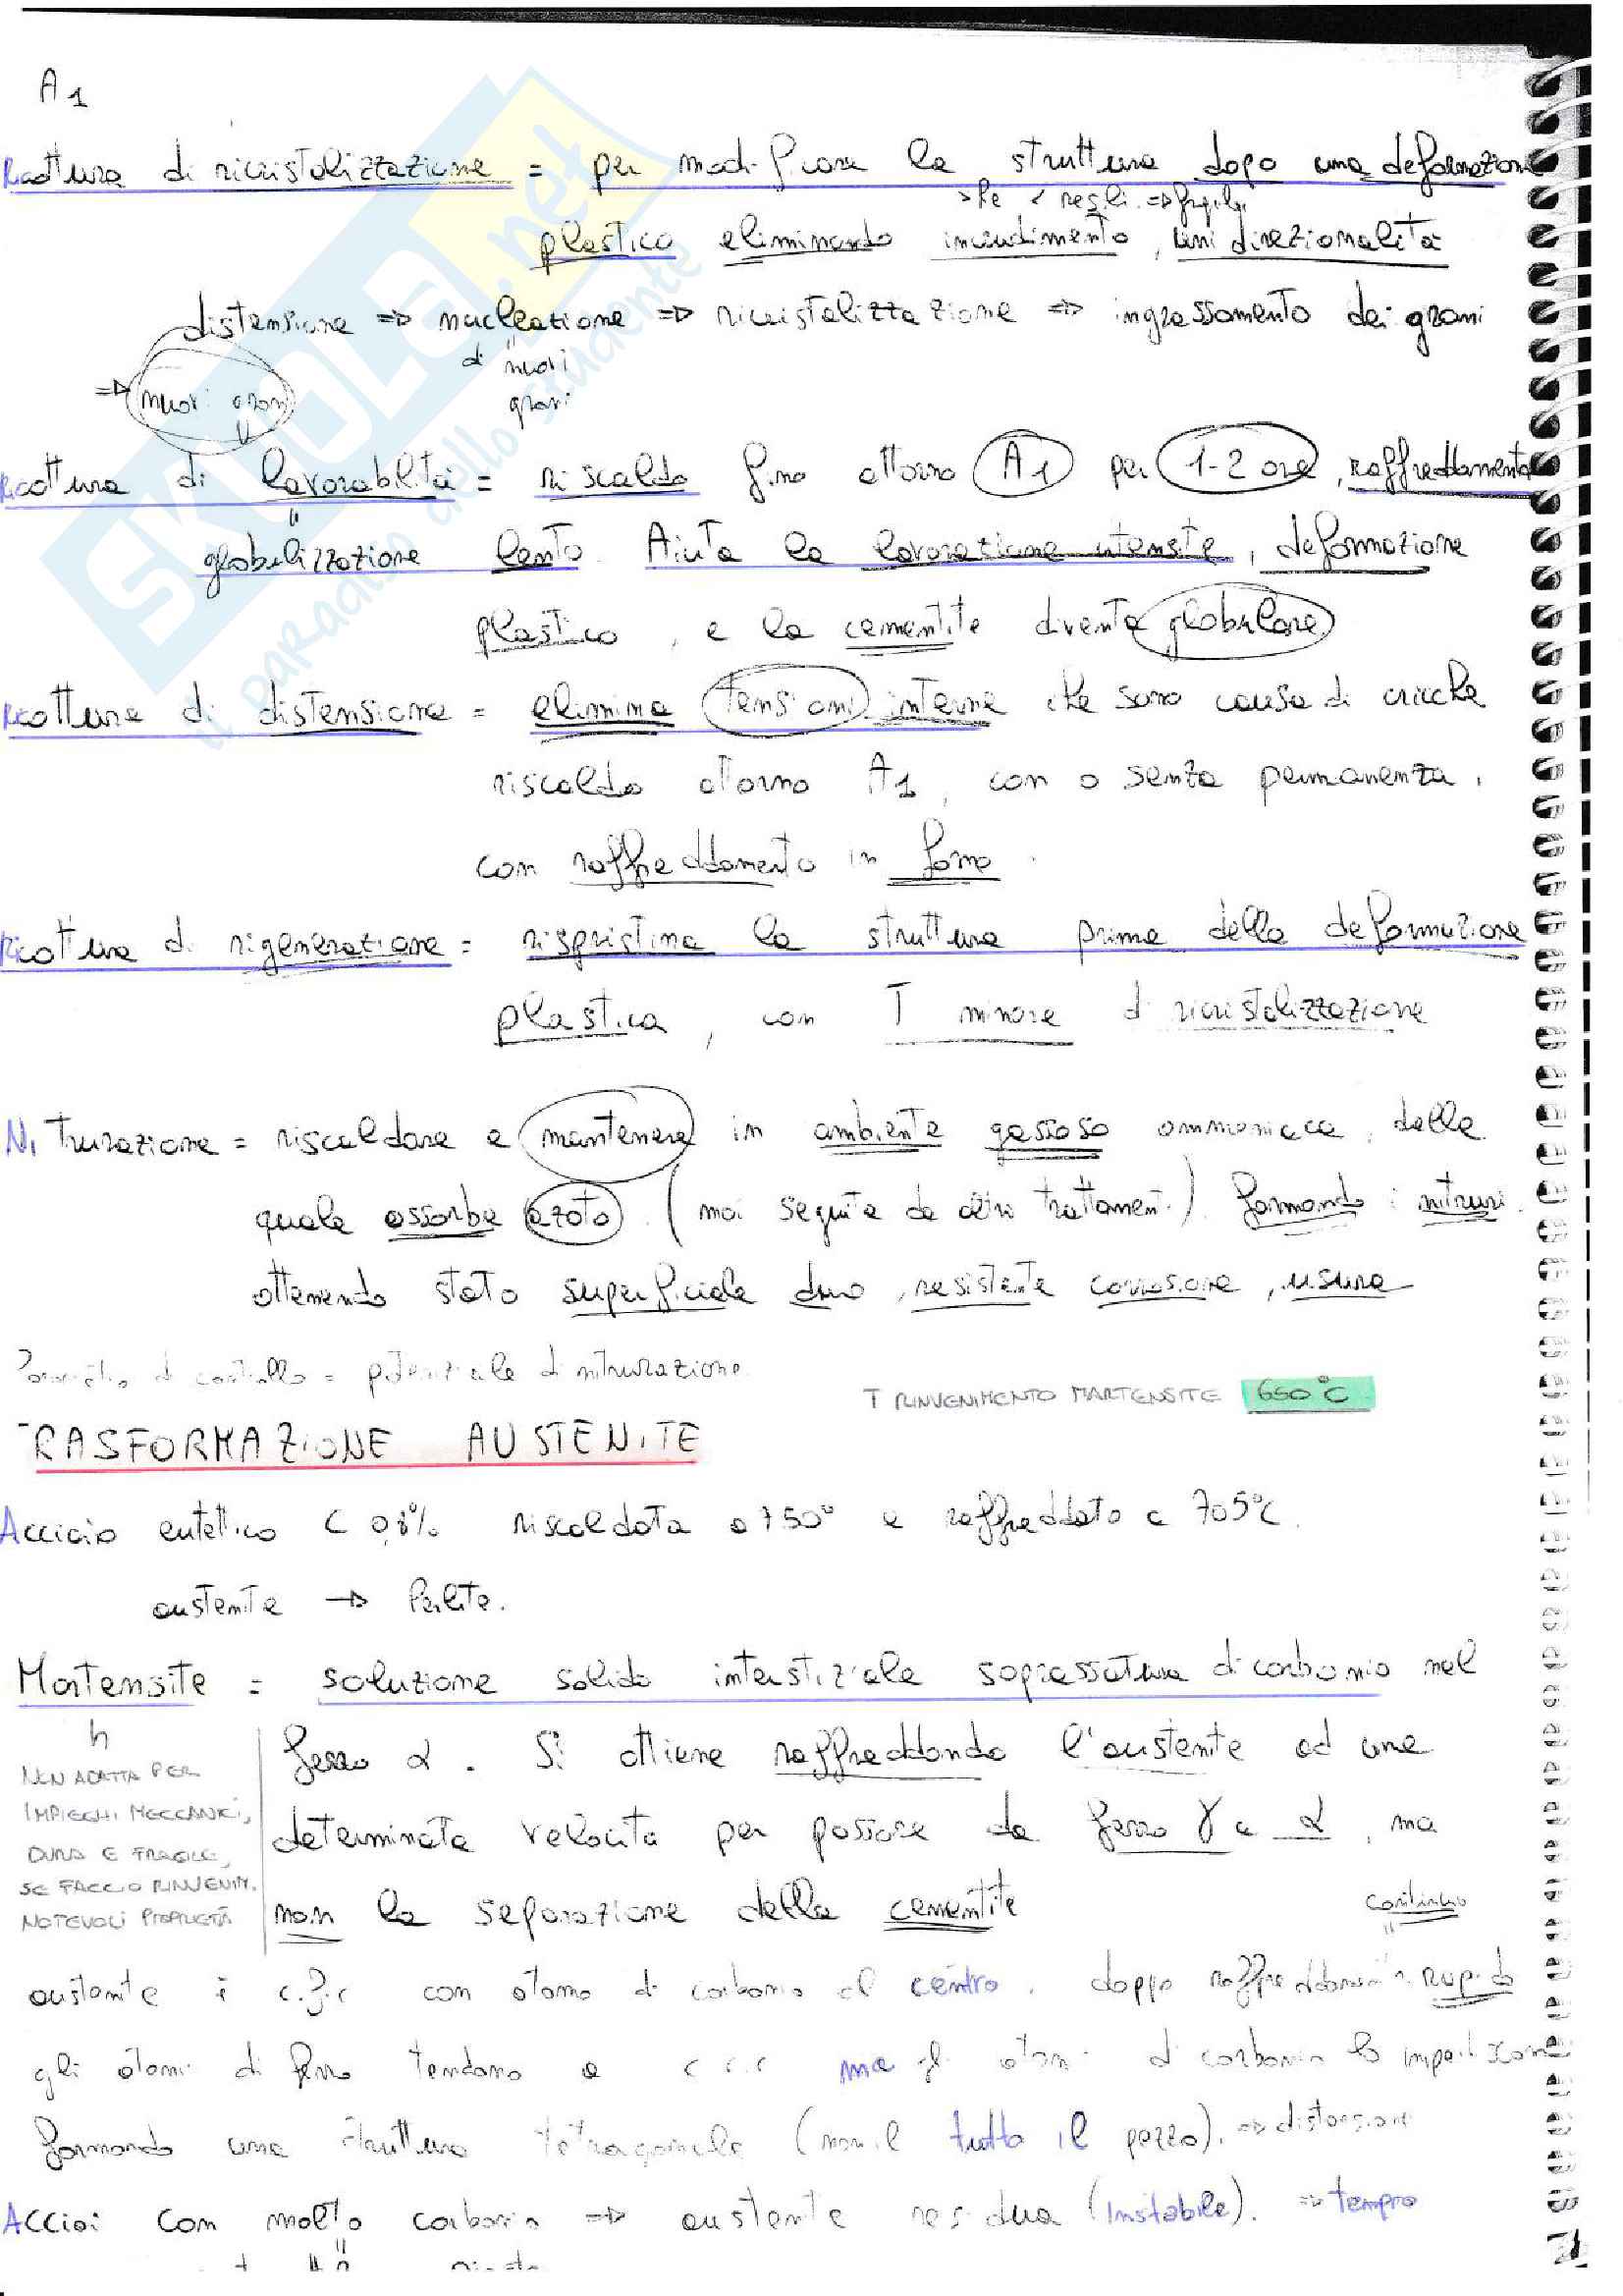 A1
Ricottura di ricristalizzazione = per modificare la struttura dopo una deformazione
>Re < resil. => fragile
plastica eliminando incrudimento, unidirezionalità
distensione => nucleazione => ricristalizzazione => ingrossamento dei grani
di nuovi grani
=> nuovi grani
Ricottura di lavorabilità = riscaldo fino attorno A1 per 1-2 ore, raffreddamento
globulizzazione lento. Aiuta la lavorazione utensile, deformazione
plastica, e la cementite diventa globulare
Ricottura di distensione = elimina tensioni interne che sono causa di cricche
riscaldo attorno A1, con o senza permanenza,
con raffreddamento in forno.
Ricottura di rigenerazione = rispristina la struttura prima della deformazione
plastica, con T minore di ricristalizzazione
Nitrurazione = riscaldare e mantenere in ambiente gassoso ammoniaca, dalla
quale assorbe azoto (mai seguita da altri trattamenti) formando i nitruri
ottenendo stato superficiale duro, resistente corrosione, usura
Parametro di controllo = potenziale di nitrurazione.
T RINVENIMENTO MARTENSITE 650°C
TRASFORMAZIONE AUSTENITE
Acciaio eutettico C 0,8% riscaldata a 750° e raffreddato a 705°C.
austenite → Perlite.
Martensite = soluzione solida interstiziale soprassatura di carbonio nel
ferro α. Si ottiene raffreddando l'austenite ad una
determinata velocità per passare da ferro γ a α, ma
non la separazione della cementite
NON ADATTA PER
IMPIEGHI MECCANICI,
DURA E FRAGILE,
SE FACCIO RINVENIM.
NOTEVOLI PROPRIETÀ
continuo
austenite è c.f.c con atomo di carbonio al centro, doppo raffreddamento rapido
gli atomi di ferro tendono a c.c.c ma gli atomi di carbonio lo impediscono
formando una struttura tetragonale (non il tutto il pezzo). => distorsioni
Acciai con molto carbonio => austenite residua (instabile). => tempra
SKUOLA.net
il paradiso dello studente